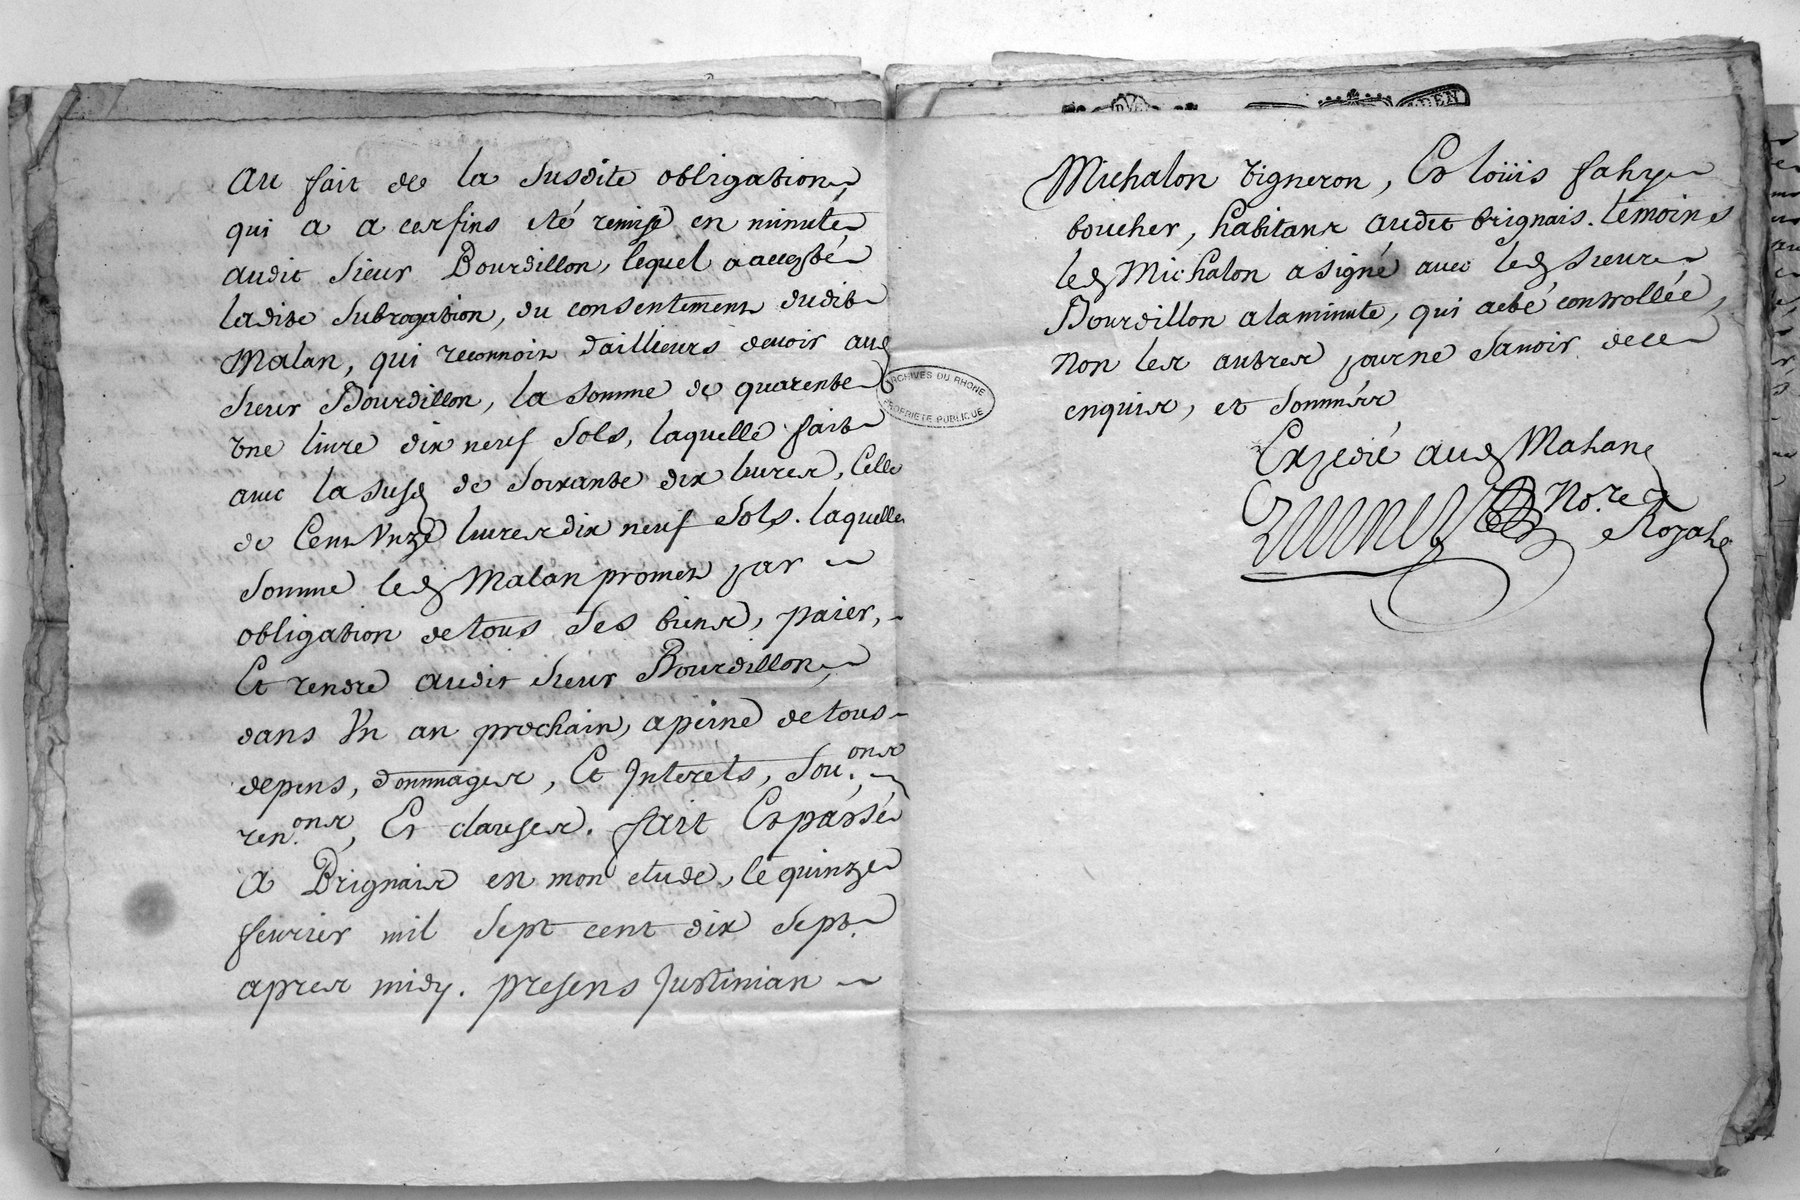 au fait de la susdite obligation,
qui a a ces fins eté remise en minute
audit sieur Bourdillon, lequel a accepté
ladite subrogation, du consentement dudit
Malan, qui reconnoit d'ailleurs devoir aud
sieur Bourdillon, la somme de quarente
une livre dix neuf sols, laquelle fait
avec la susd de soixante dix livres, Celle
de Cent Unze livres dix neuf sols. laquelle
somme led Malan promet par
obligation de tous ses biens, paier,
Et rendre audit sieur Bourdillon,
dans Un an prochain, a peine de tous
depens, dommages, Et Interets, sou.ons,
ren.ons, Et clauses. fait Et passé
A Brignais en mon etude, le quinze
fevrier mil sept cent dix sept.
apres midy. presens Justinian
Michalon vigneron, Et loüis fahy
boucher, habitans audit brignais. témoins
led Michalon a signé avec led sieur
Bourdillon a la minute, qui a eté controllée,
Non les autres pour ne savoir de ce
enquis, et sommés
Expedié aud Malan
No.re
Royal
ARCHIVES DU RHONE
PROPRIETE PUBLIQUE